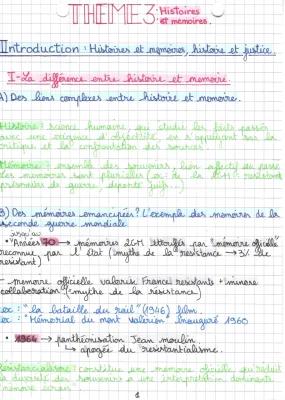 THEME 3: Histoires et mémoires.
Introduction : Histoires et mémoires, histoire et justice.
I - La différence entre histoire et memoire.
A) Des liens complexes entre histoire et memoire.
Histoire: science humaine, qui étudie les faits passés
avec une exigence d'objectivité, en s'appuyant sur la
critique et la confrontation des sources.
Mémoire: ensemble des souvenirs, lien affectif au passé
les mémoires sont plurielles (ex: de la 2GM: résistants
prisonniers de guerre, déporté juifs...)
B) Des mémoires emancipées? L'exemple des mémoires de la
seconde guerre mondiale
jusqu'au
• Années 70 → mémoires 2GM étouffés par "mémoire officielle"
reconnue par l'état (≈mythe de la résistance → 3% de
résistant)
- memoire officielle valorise Francei resistants + minore
collaboration (≈mythe de la résistance)
ex: "la bataille du rail" (1946) film
ex: "Mémorial du mont Valérien" inauguré 1960
• 1964 → panthéonisation Jean moulin
↳ apogée du resistantialisme.
Résistancialisme: constitue une mémoire officielle qui réduit
la diversité des souvenirs a une interprétation dominante
"mémoire écran"
1